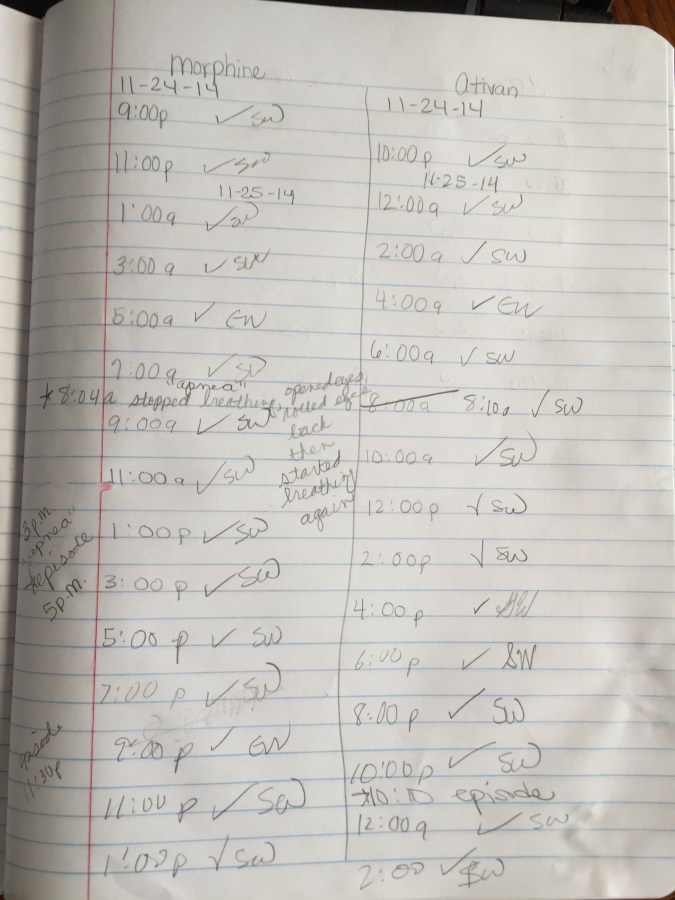 Morphine
11-24-14
9:00p ✓ SW
11:00p ✓ SW
11-25-14
1:00a ✓ SW
3:00a ✓ SW
5:00a ✓ EW
7:00a ✓ SW
*8:04a "apnea" stopped breathing, opened eyes, rolled eyes back then started breathing again
9:00a ✓ SW
11:00a ✓ SW
1:00p ✓ SW
3:00p ✓ SW
5:00p ✓ SW
7:00p ✓ SW
9:00p ✓ EW
11:00p ✓ SW
1:00p ✓ SW
3p.m.
"apnea"
*episode
5p.m.
episode
11:30p
Ativan
11-24-14
10:00p ✓ SW
11-25-14
12:00a ✓ SW
2:00a ✓ SW
4:00a ✓ EW
6:00a ✓ SW
8:00a 8:10a ✓ SW
10:00a ✓ SW
12:00p ✓ SW
2:00p ✓ SW
4:00p ✓
6:00p ✓ SW
8:00p ✓ SW
10:00p ✓ SW
*10:10 episode
12:00a ✓ SW
2:00 ✓ SW